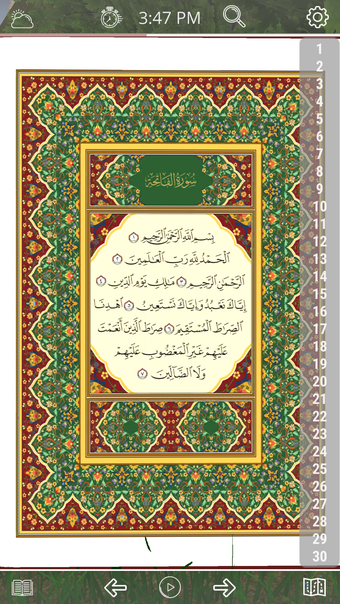 3:47 PM
سورة الفاتحة
بِسْمِ ٱللَّهِ ٱلرَّحْمَٰنِ ٱلرَّحِيمِ ١
ٱلْحَمْدُ لِلَّهِ رَبِّ ٱلْعَٰلَمِينَ ٢
ٱلرَّحْمَٰنِ ٱلرَّحِيمِ ٣ مَٰلِكِ يَوْمِ ٱلدِّينِ ٤
إِيَّاكَ نَعْبُدُ وَإِيَّاكَ نَسْتَعِينُ ٥ ٱهْدِنَا
ٱلصِّرَٰطَ ٱلْمُسْتَقِيمَ ٦ صِرَٰطَ ٱلَّذِينَ أَنْعَمْتَ
عَلَيْهِمْ غَيْرِ ٱلْمَغْضُوبِ عَلَيْهِمْ
وَلَا ٱلضَّآلِّينَ ٧
1
2
3
4
5
6
7
8
9
10
11
12
13
14
15
16
17
18
19
20
21
22
23
24
25
26
27
28
29
30